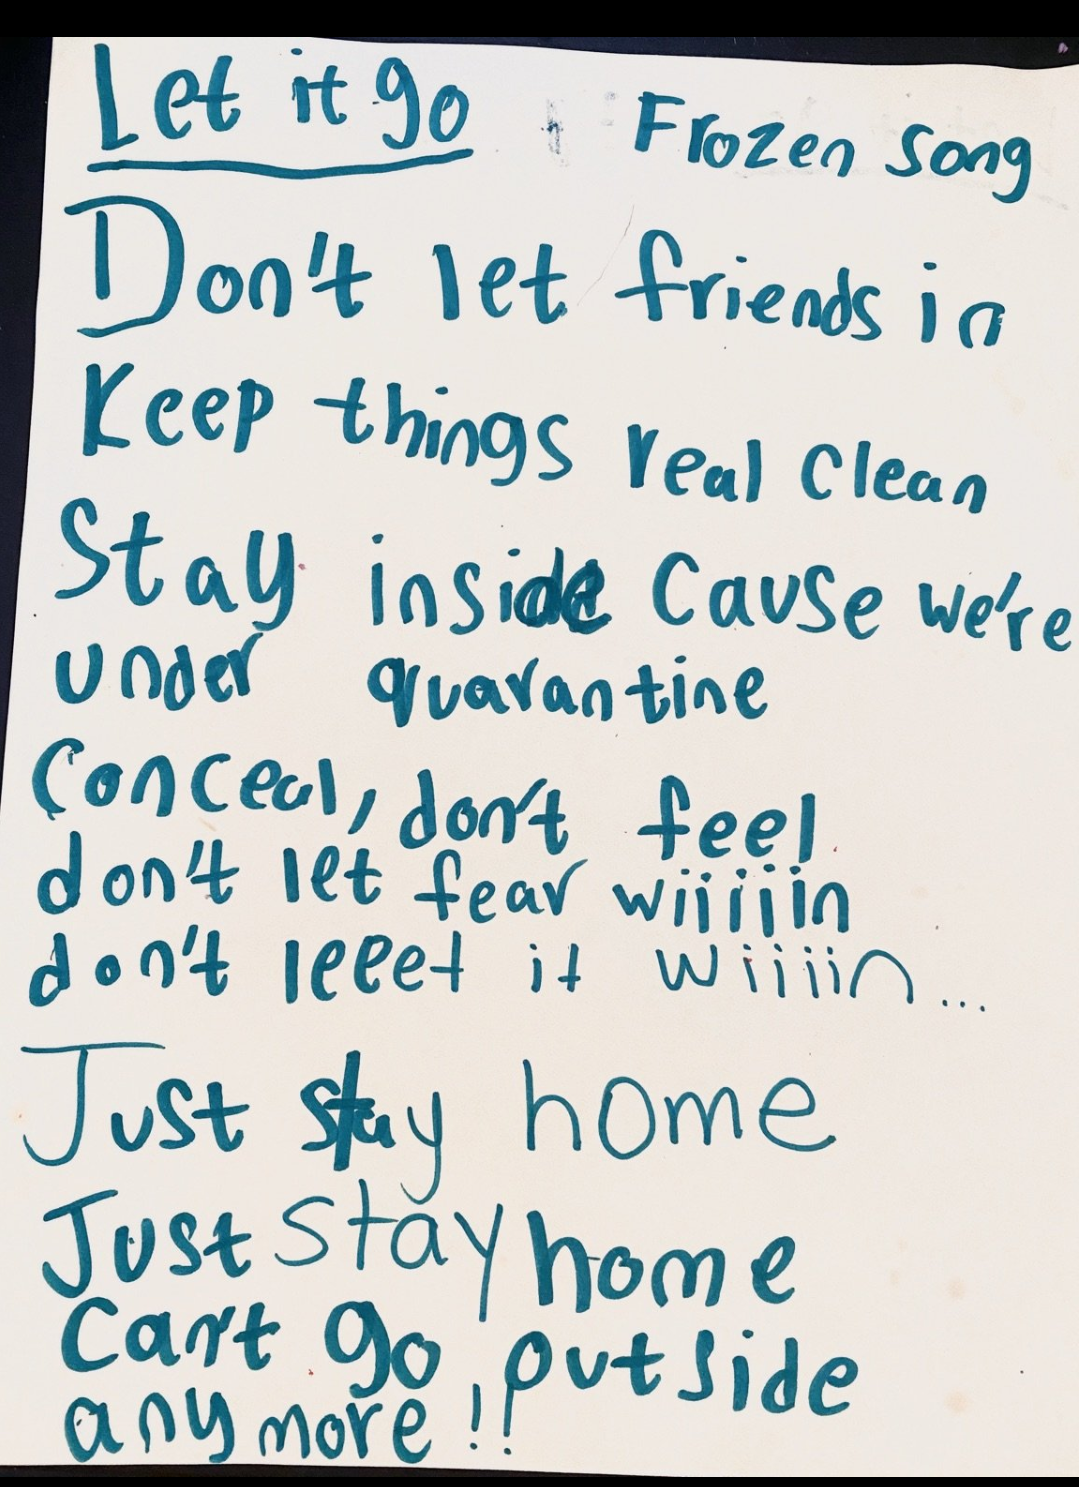 Let it go Frozen song
Don't let friends in
Keep things real clean
Stay inside cause we're
under quarantine
Conceal, don't feel
don't let fear wiiiiin
don't leeet it wiiiin...
Just stay home
Just stay home
Can't go outside
anymore!!